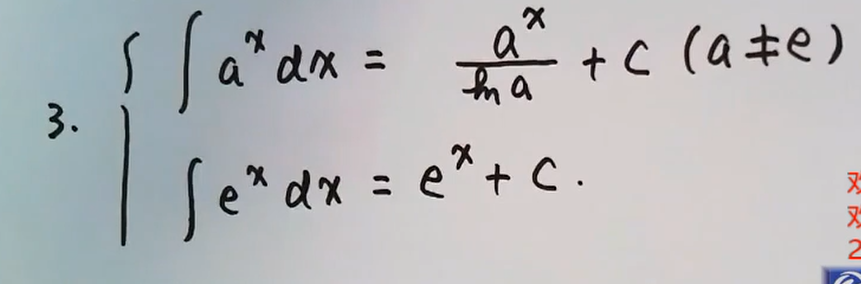 3. { ∫ a^x dx = a^x / ln a + C (a ≠ e)
∫ e^x dx = e^x + C.
2